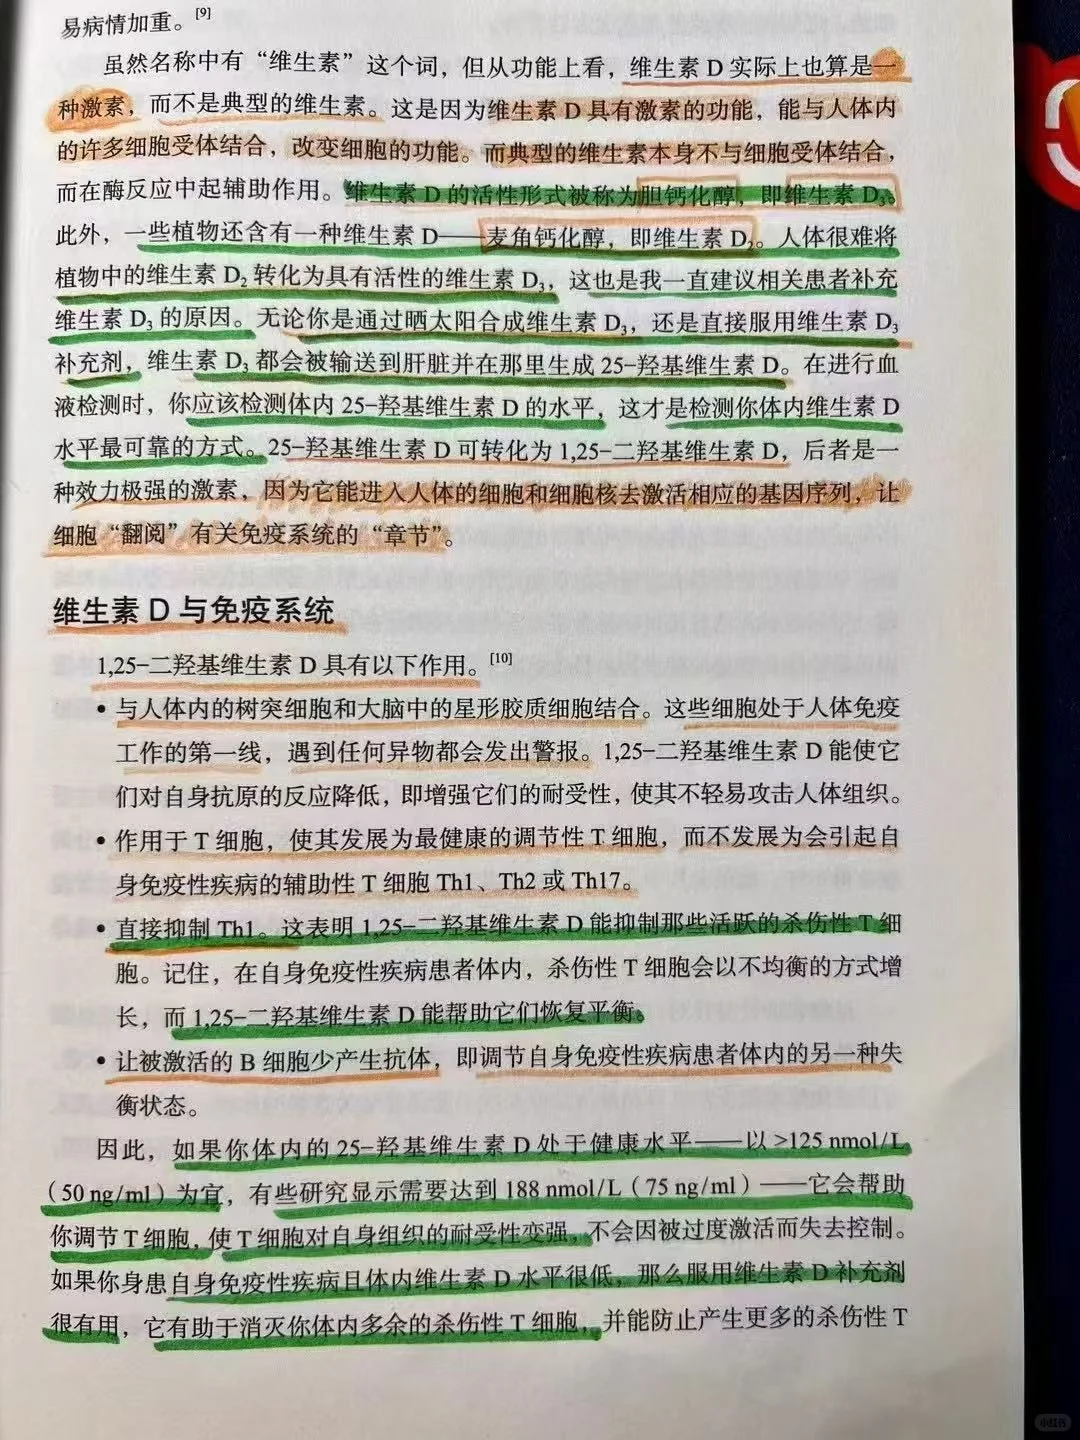 易病情加重。[9]
虽然名称中有“维生素”这个词，但从功能上看，维生素 D 实际上也算是一
种激素，而不是典型的维生素。这是因为维生素 D 具有激素的功能，能与人体内
的许多细胞受体结合，改变细胞的功能。而典型的维生素本身不与细胞受体结合，
而在酶反应中起辅助作用。维生素 D 的活性形式被称为胆钙化醇，即维生素 D₃。
此外，一些植物还含有一种维生素 D——麦角钙化醇，即维生素 D₂。人体很难将
植物中的维生素 D₂ 转化为具有活性的维生素 D₃，这也是我一直建议相关患者补充
维生素 D₃ 的原因。无论你是通过晒太阳合成维生素 D₃，还是直接服用维生素 D₃
补充剂，维生素 D₃ 都会被输送到肝脏并在那里生成 25-羟基维生素 D。在进行血
液检测时，你应该检测体内 25-羟基维生素 D 的水平，这才是检测你体内维生素 D
水平最可靠的方式。25-羟基维生素 D 可转化为 1,25-二羟基维生素 D，后者是一
种效力极强的激素，因为它能进入人体的细胞和细胞核去激活相应的基因序列，让
细胞“翻阅”有关免疫系统的“章节”。
维生素 D 与免疫系统
1,25-二羟基维生素 D 具有以下作用。[10]
• 与人体内的树突细胞和大脑中的星形胶质细胞结合。这些细胞处于人体免疫
工作的第一线，遇到任何异物都会发出警报。1,25-二羟基维生素 D 能使它
们对自身抗原的反应降低，即增强它们的耐受性，使其不轻易攻击人体组织。
• 作用于 T 细胞，使其发展为最健康的调节性 T 细胞，而不发展为会引起自
身免疫性疾病的辅助性 T 细胞 Th1、Th2 或 Th17。
• 直接抑制 Th1。这表明 1,25-二羟基维生素 D 能抑制那些活跃的杀伤性 T 细
胞。记住，在自身免疫性疾病患者体内，杀伤性 T 细胞会以不均衡的方式增
长，而 1,25-二羟基维生素 D 能帮助它们恢复平衡。
• 让被激活的 B 细胞少产生抗体，即调节自身免疫性疾病患者体内的另一种失
衡状态。
因此，如果你体内的 25-羟基维生素 D 处于健康水平——以 >125 nmol/L
（50 ng/ml）为宜，有些研究显示需要达到 188 nmol/L（75 ng/ml）——它会帮助
你调节 T 细胞，使 T 细胞对自身组织的耐受性变强，不会因被过度激活而失去控制。
如果你身患自身免疫性疾病且体内维生素 D 水平很低，那么服用维生素 D 补充剂
很有用，它有助于消灭你体内多余的杀伤性 T 细胞，并能防止产生更多的杀伤性 T
小红书